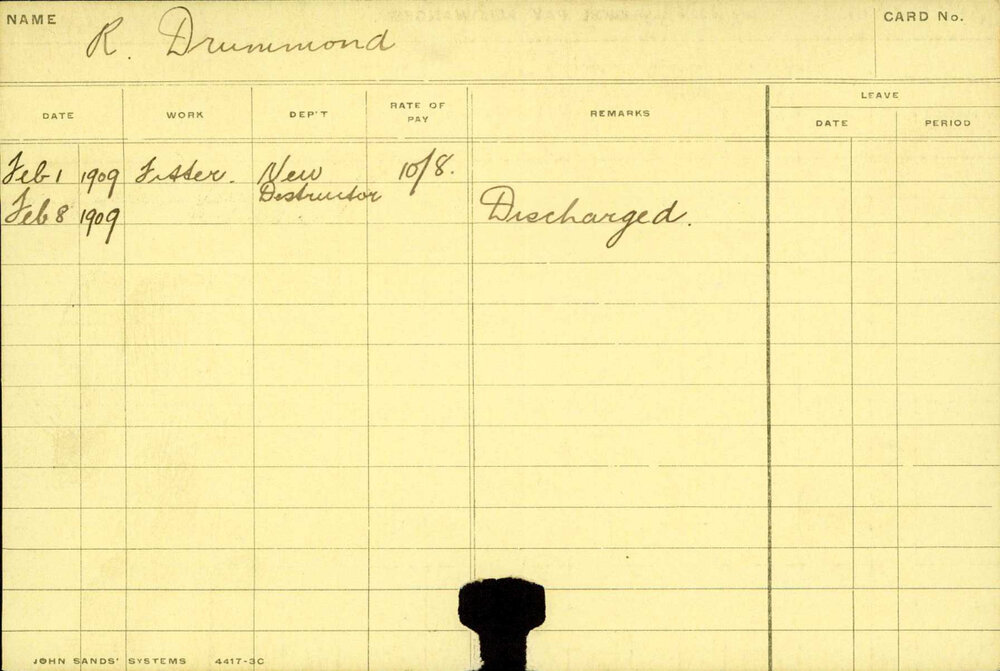 NAME R. Drummond CARD No.
DATE WORK DEP'T RATE OF PAY REMARKS LEAVE
DATE PERIOD
Feb 1 1909 Fitter. New Destructor 10/8.
Feb 8 1909 Discharged.
JOHN SANDS' SYSTEMS 4417-3C